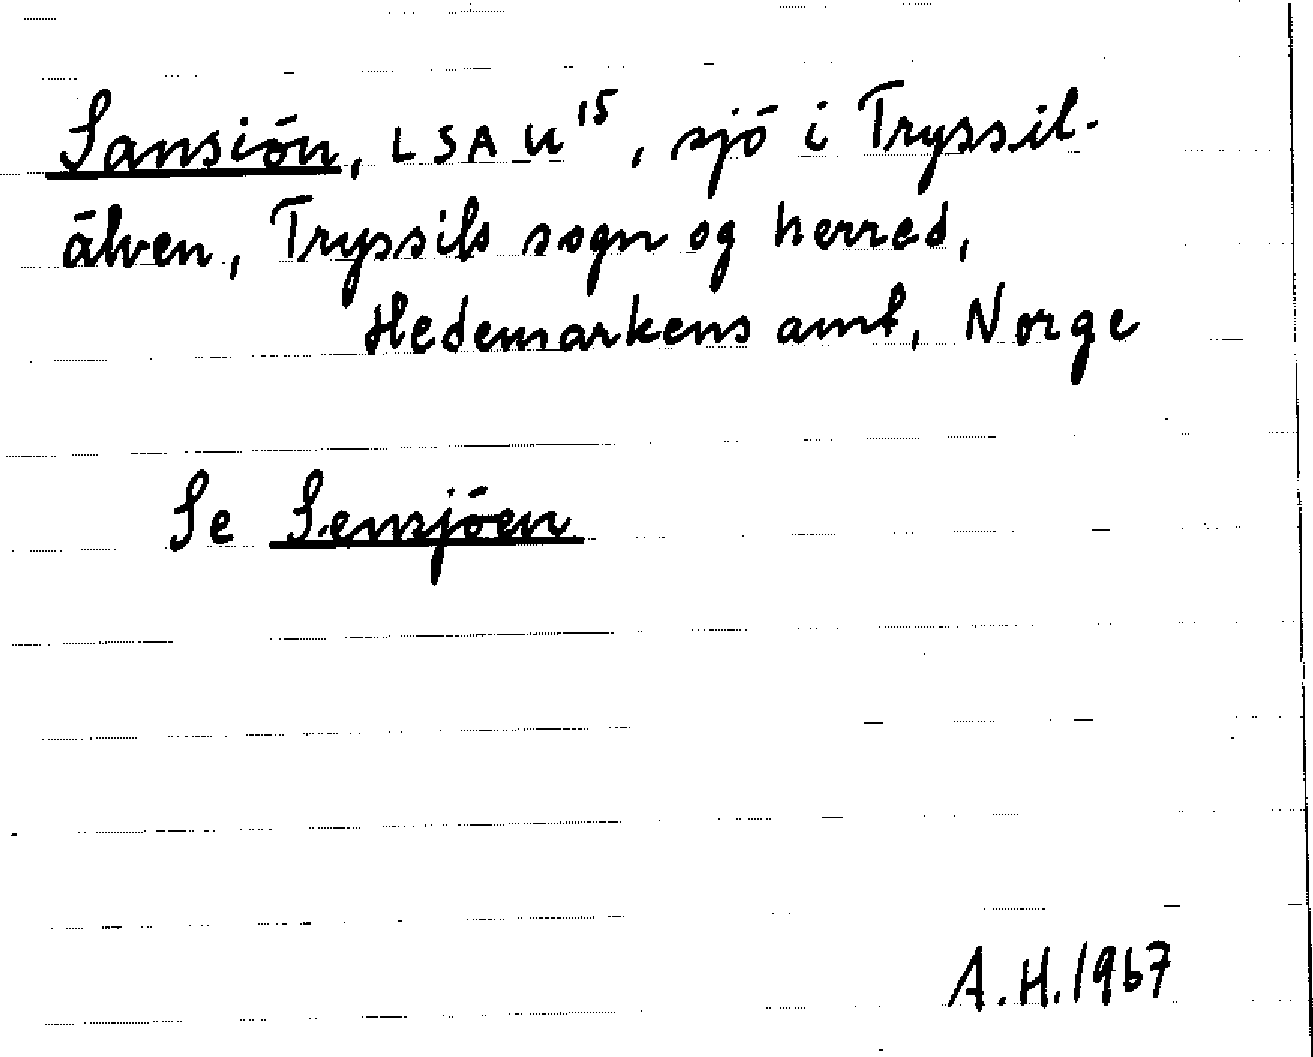 Sansiön, LSA U¹⁵, sjö i Tryssil-
älven, Tryssils sogn og herred,
Hedemarkens amt, Norge
Se Sensjöen
A. H. 1967